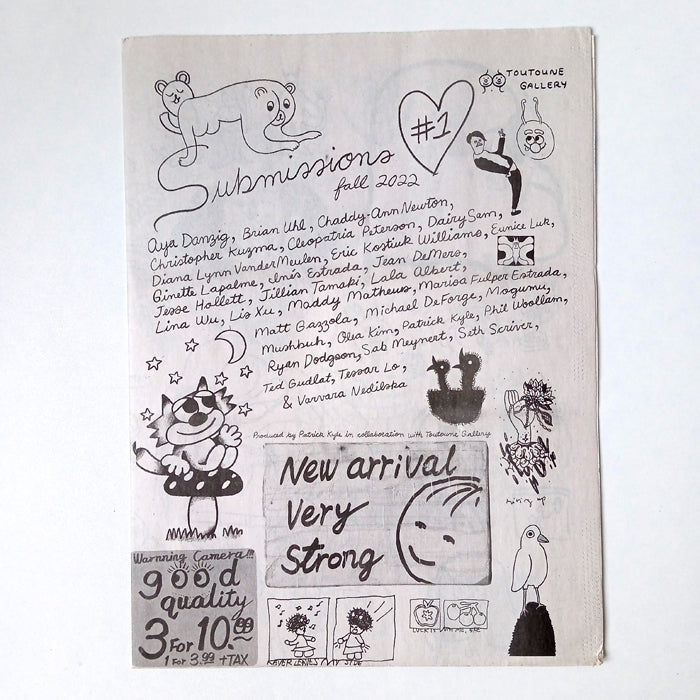 TOUTOUNE
GALLERY
#1
Submissions
fall 2022
Aya Danzig, Brian Uhl, Chaddy-Ann Newton,
Christopher Kuzma, Cleopatria Peterson, Dairy Sam,
Diana Lynn VanderMeulen, Eric Kostiuk Williams, Eunice Luk,
Ginette Lapalme, Inés Estrada, Jean DeMers,
Jesse Hallett, Jillian Tamaki, Lala Albert,
Lina Wu, Lis Xu, Maddy Mathews, Marisa Fulper Estrada,
Matt Gazzola, Michael DeForge, Mogumu,
Mushbuh, Olea Kim, Patrick Kyle, Phil Woollam,
Ryan Dodgson, Sab Meynert, Seth Scriver,
Ted Gudlat, Tessar Lo,
& Varvara Nedilska
Produced by Patrick Kyle in collaboration with Toutoune Gallery
New arrival
Very
Strong
Warnning Camera!!!
good
quality
3 For 10.99
1 For 3.99 + TAX